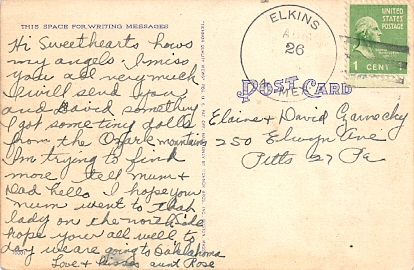 THIS SPACE FOR WRITING MESSAGES
Hi Sweethearts hows
my angels I miss
you all very much
I will send you
and David something
I got some ting dolls
from the Ozark mountains
I'm trying to find
more tell mum &
Dad hello I hope your
mum went to that
lady on the northside
hope your all well to
day we are going to Oaklahoma
Love & Kisses aunt Rose
ELKINS
26
POST CARD
UNITED
STATES
POSTAGE
1 CENT 1
Elaine & David
250 Elwyn Ave
Pitts 27 Pa